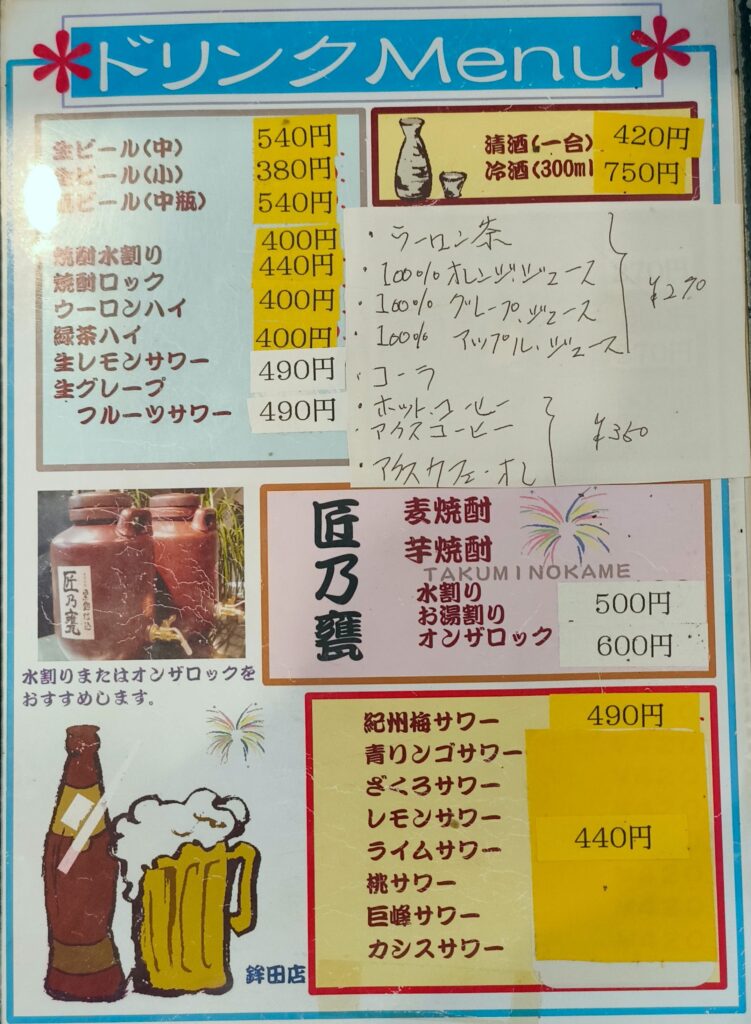 ドリンクMenu
生ビール(中) 540円
生ビール(小) 380円
ビール(中瓶) 540円
400円
焼酎水割り 440円
焼酎ロック
ウーロンハイ 400円
緑茶ハイ 400円
生レモンサワー 490円
生グレープ
フルーツサワー 490円
清酒(一合) 420円
冷酒(300ml 750円
・ウーロン茶
・100%オレンジ・ジュース
・100% グレープ・ジュース
・100% アップル・ジュース
¥270
・コーラ
・ホット・コーヒー
・アイスコーヒー
¥350
・アイスカフェ・オレ
匠乃甕
匠乃甕
麦焼酎
芋焼酎
TAKUMINOKAME
水割り 500円
お湯割り
オンザロック 600円
水割りまたはオンザロックを
おすすめします。
紀州梅サワー 490円
青リンゴサワー
ざくろサワー
レモンサワー 440円
ライムサワー
桃サワー
巨峰サワー
カシスサワー
鉾田店